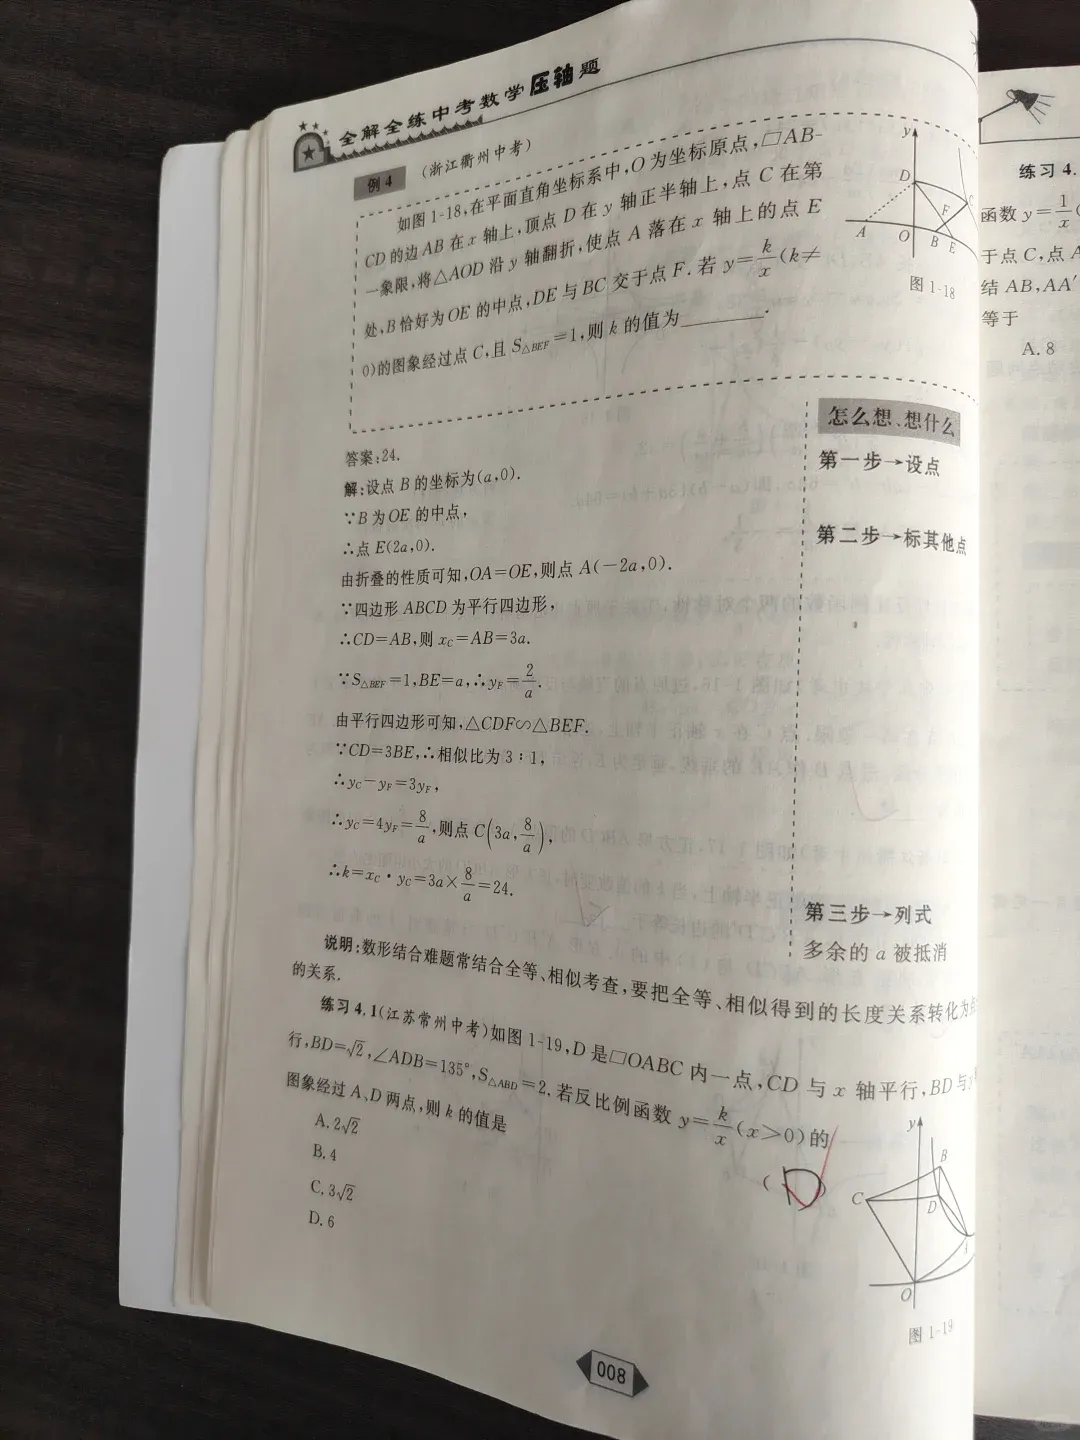 全解全练中考数学压轴题
例4 (浙江衢州中考)
如图1-18,在平面直角坐标系中,O为坐标原点,□AB-
CD的边AB在x轴上,顶点D在y轴正半轴上,点C在第
一象限,将△AOD沿y轴翻折,使点A落在x轴上的点E
处,B恰好为OE的中点,DE与BC交于点F.若y=k/x(k≠
0)的图象经过点C,且S△BEF=1,则k的值为________.
y
D
C
F
A
O
B
E
图1-18
答案:24.
解:设点B的坐标为(a,0).
∵B为OE的中点,
∴点E(2a,0).
由折叠的性质可知,OA=OE,则点A(-2a,0).
∵四边形ABCD为平行四边形,
∴CD=AB,则xC=AB=3a.
∵S△BEF=1,BE=a,∴yF=2/a.
由平行四边形可知,△CDF∽△BEF.
∵CD=3BE,∴相似比为3:1,
∴yC-yF=3yF,
∴yC=4yF=8/a,则点C(3a,8/a),
∴k=xC·yC=3a×8/a=24.
怎么想、想什么
第一步→设点
第二步→标其他点
第三步→列式
多余的a被抵消
说明:数形结合难题常结合全等、相似考查,要把全等、相似得到的长度关系转化为
的关系.
练习4.1(江苏常州中考)如图1-19,D是□OABC内一点,CD与x轴平行,BD与
行,BD=√2,∠ADB=135°,S△ABD=2.若反比例函数y=k/x(x>0)的
图象经过A、D两点,则k的值是
(D)
A.2√2
B.4
C.3√2
D.6
y
B
C
D
A
O
图1-19
008
练习4.
函数y=1/x(
于点C,点A
结AB,AA′
等于
A.8